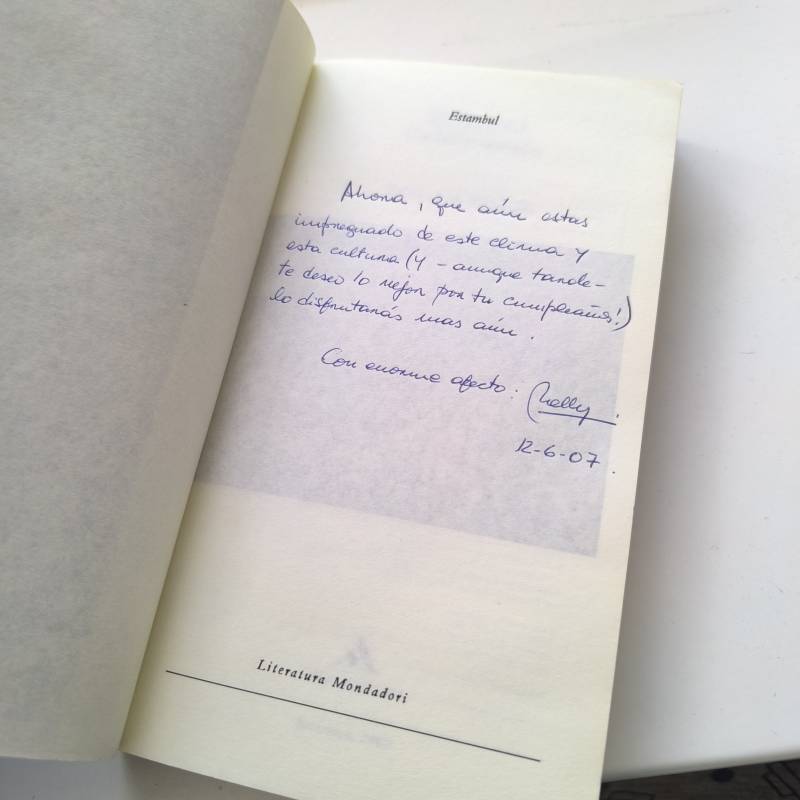 Estambul
Ahora, que aún estas
impregnado de este clima y
esta cultura (y - aunque tarde -
te deseo lo mejor por tu cumpleaños!)
lo disfrutarás mas aún.
Con enorme afecto:
12-6-07.
Literatura Mondadori